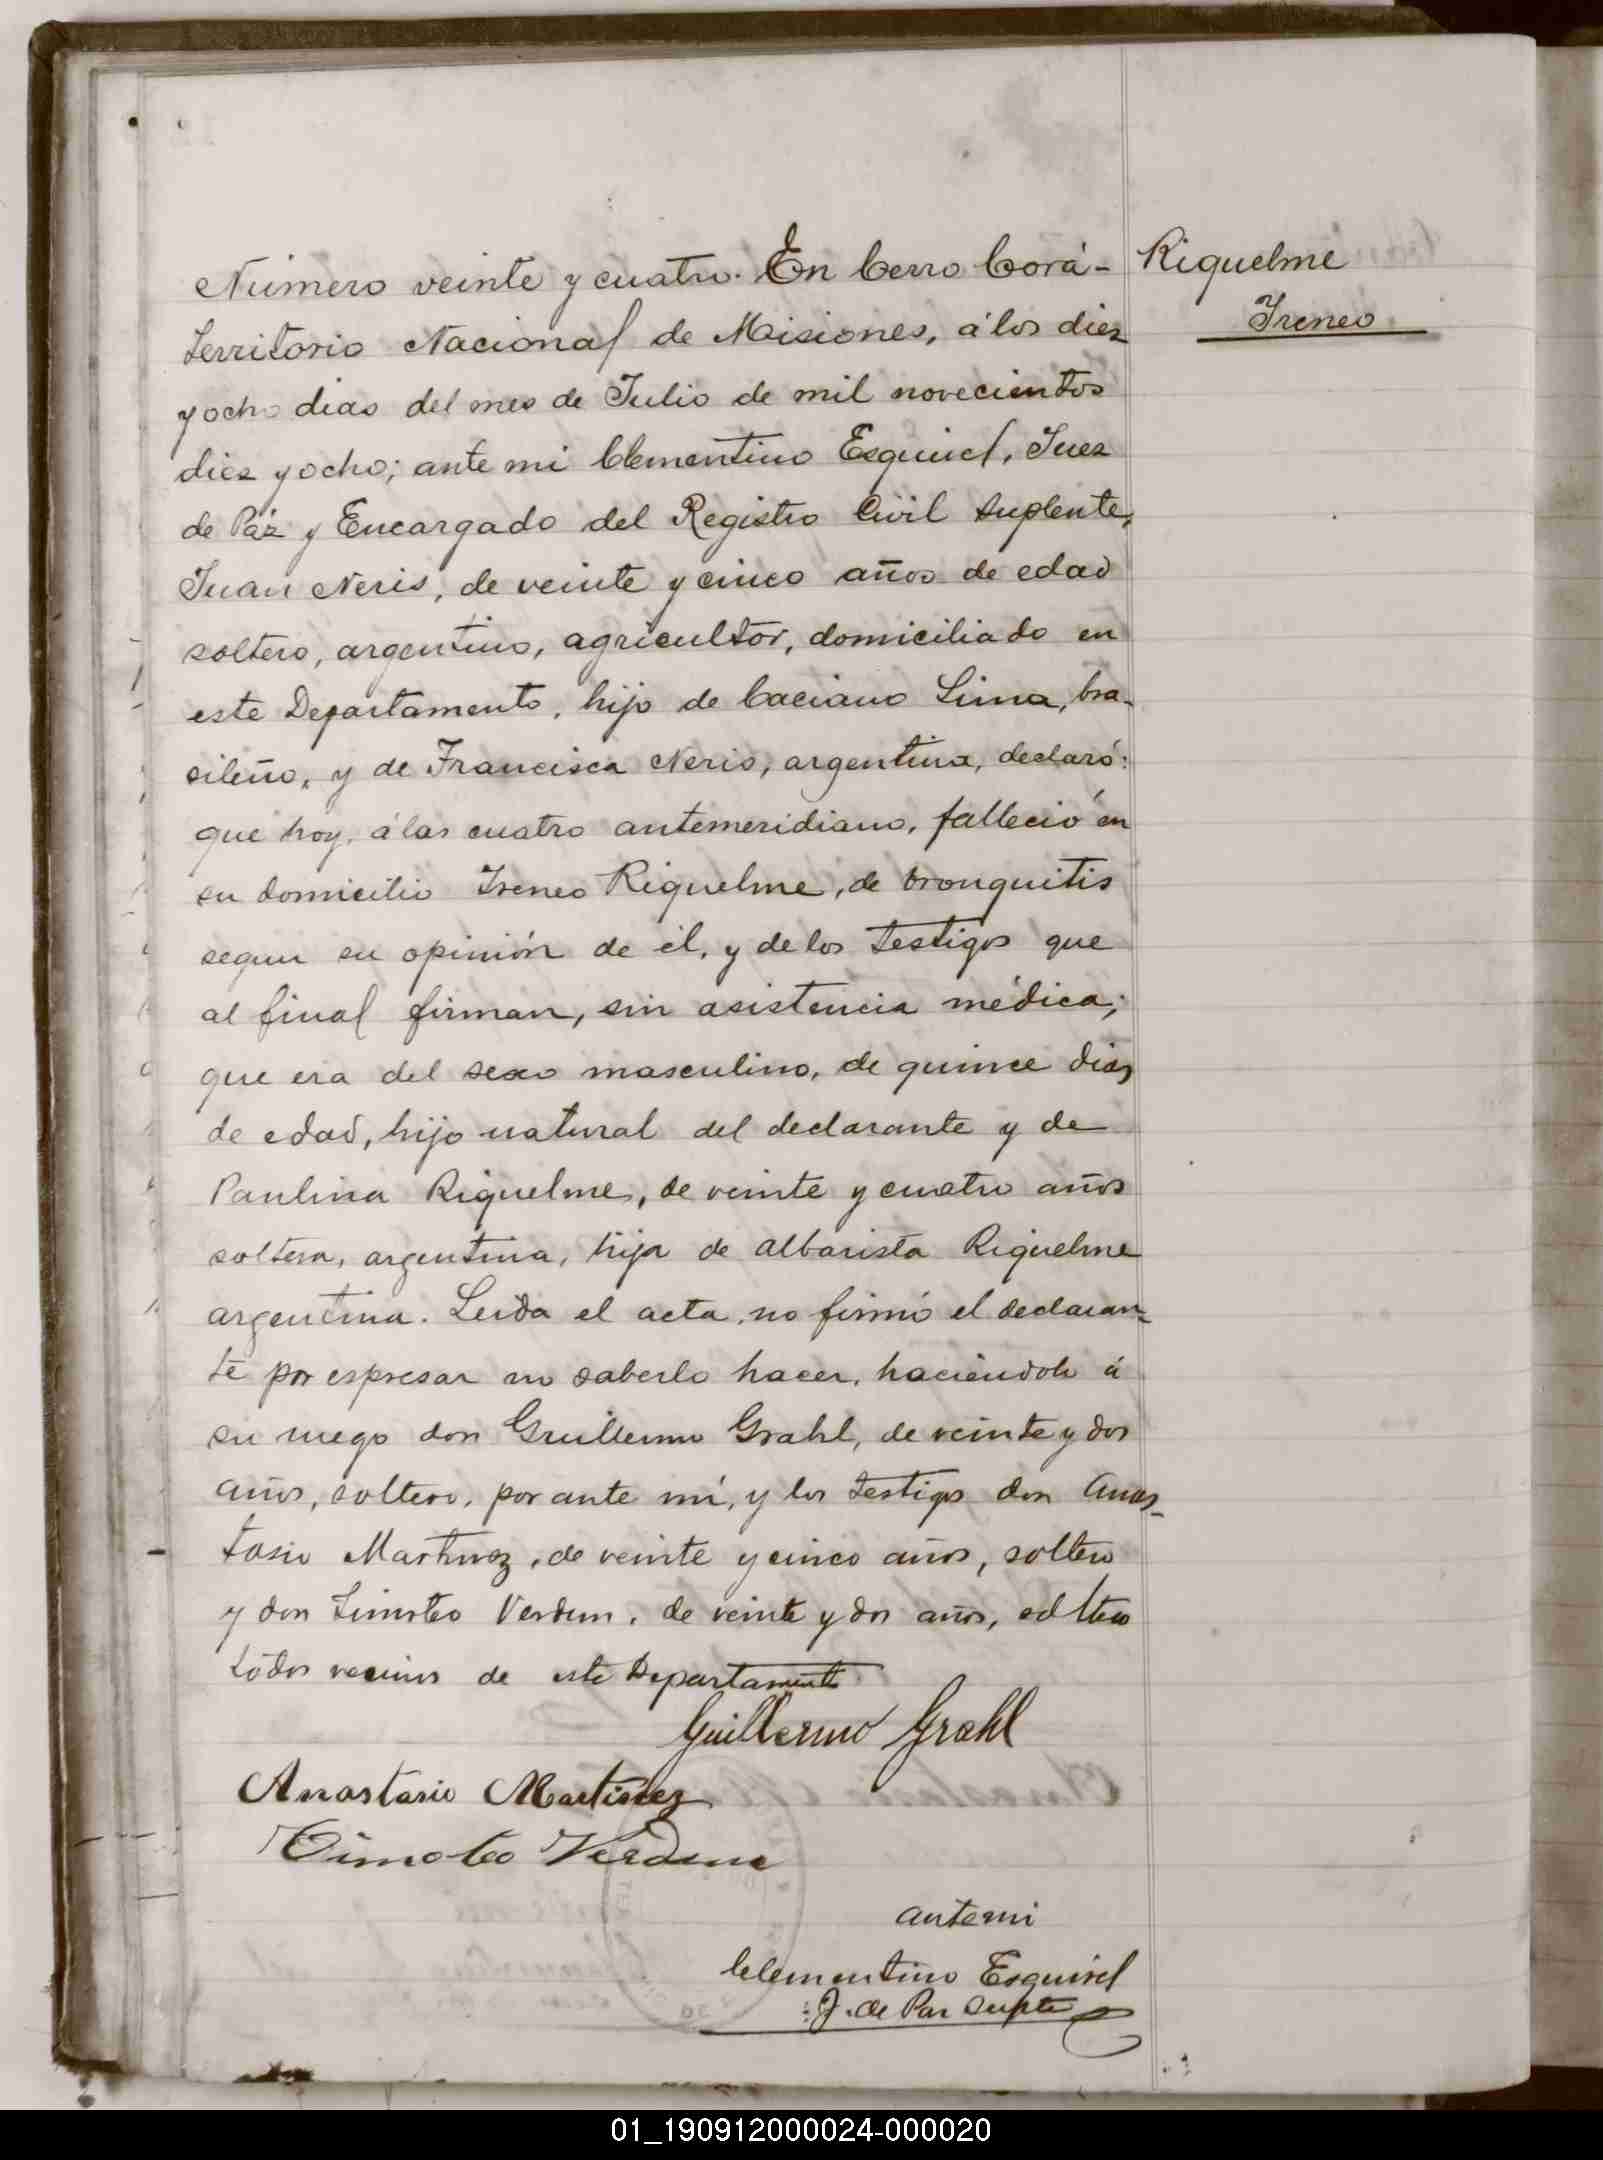 Número veinte y cuatro. En Cerro Corá-
Territorio Nacional de Misiones, á los diez
y ocho dias del mes de Julio de mil novecientos
diez y ocho; ante mi Clementino Esquivel, Juez
de Páz y Encargado del Registro Civil Suplente,
Juan Neris, de veinte y cinco años de edad
soltero, argentino, agricultor, domiciliado en
este Departamento, hijo de Caciano Lima, bra-
sileño, y de Francisca Neris, argentina, declaró:
que hoy, á las cuatro antemeridiano, falleció en
su domicilio Ireneo Riquelme, de bronquitis
segun su opinión de él, y de los testigos que
al final firman, sin asistencia médica;
que era del sexo masculino, de quince dias
de edad, hijo natural del declarante y de
Paulina Riquelme, de veinte y cuatro años
soltera, argentina, hija de Albarista Riquelme
argentina. Leida el acta, no firmó el declaran-
te por espresar no saberlo hacer, haciéndolo á
su ruego don Guillermo Grahl, de veinte y dos
años, soltero, por ante mí, y los testigos don Anas-
tasio Martinez, de veinte y cinco años, soltero
y don Timoteo Verdun, de veinte y dos años, soltero
todos vecinos de este Departamento
Riquelme
Ireneo
Guillermo Grahl
Anastasio Martinez
Timoteo Verdun
ante mi
Clementino Esquivel
J. de Paz Supte
01_190912000024-000020